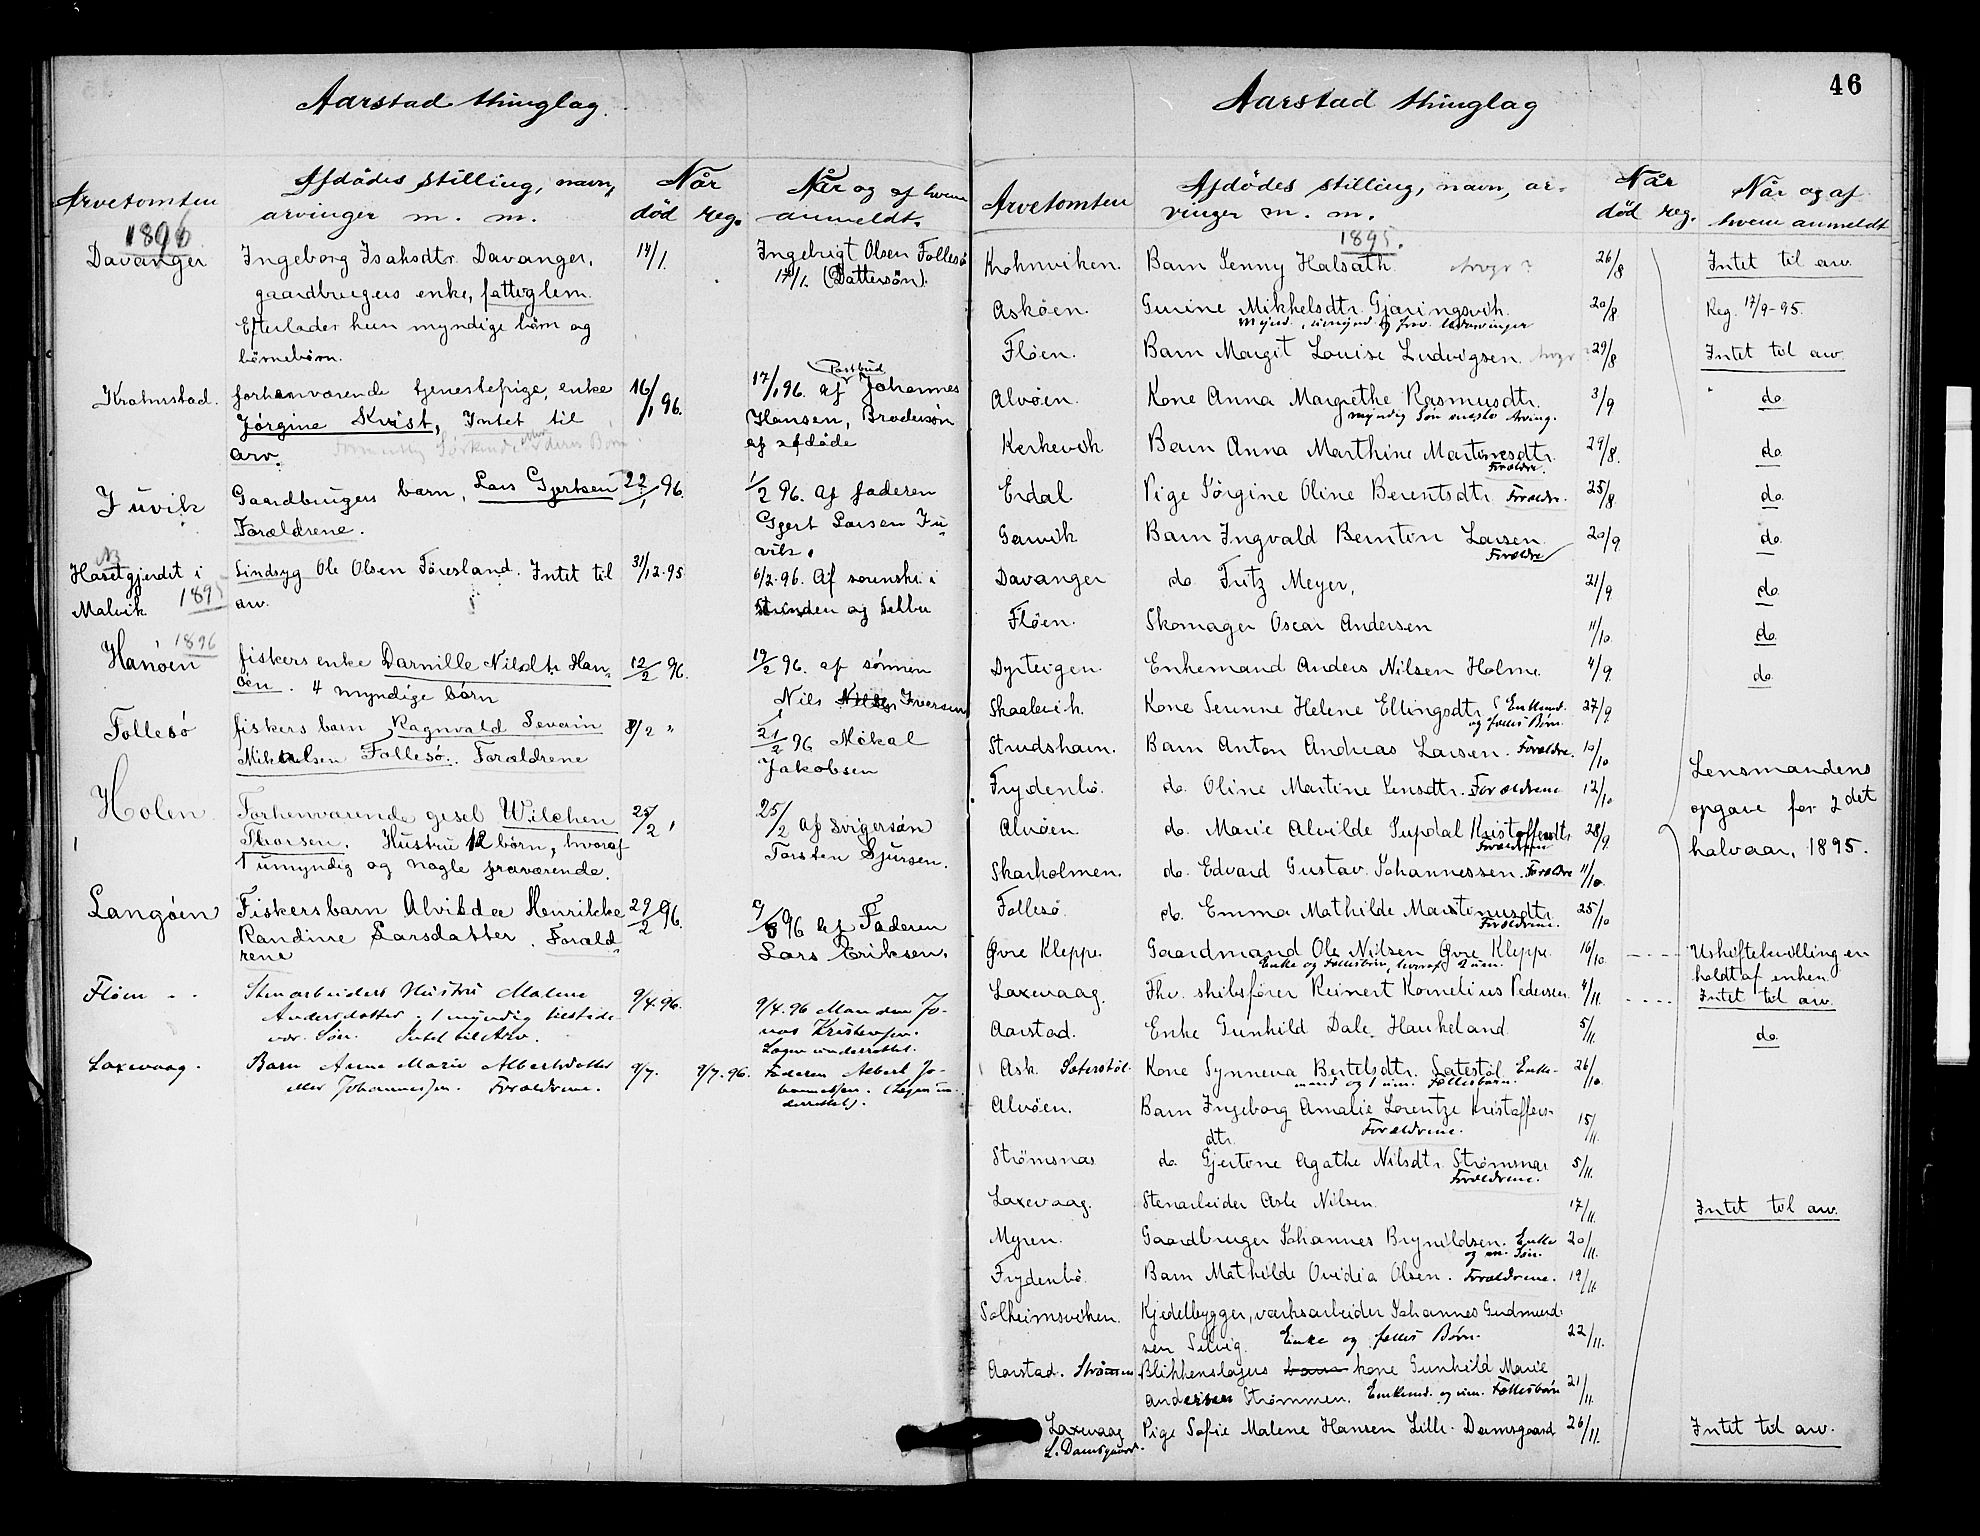 Aarstad thinglag.
Arvetomten
Afdødes stilling, navn,
arvinger m. m.
Når
død reg.
Når og af hvem
anmeldt.
1896
Davanger
Ingeborg Isaksdtr. Davanger,
gaardbrugers enke, fattiglem.
Efterlader kun myndige børn og
børnebørn.
14/1.
Ingebrigt Olsen Follesø
17/1. (Dattersøn).
Krohnstad.
forhenværende tjenestepige, enke
Jørgine Kvist, Intet til
arv.
16/1 96.
17/1 96. af Postbud Johannes
Hansen, Brodersøn
af afdøde
Juvik
Gaardbrugers barn, Lars Gjertsen
Forældrene.
22/1 96.
1/2 96. af faderen
Gjert Larsen Ju-
vik.
Hasetgjerdet i
Malvik 1895
Sindsyg Ole Olsen Føresland. Intet til
arv.
31/12-95
6/2-96. Af sorenskr. i
Strinden og Selbu
1896
Hanøen
fiskers enke Darnille Nilsdtr. Han-
øen. 4 myndige børn
12/2 96.
19/2 96. af sønnen
Nils Iversen
Follesø
fiskers barn Ragnvald Severin
Mikalsen Follesø. Forældrene
8/2 "
21/2 96 Mikal
Jakobsen
Holen
Forhenværende gesel Wilchen
Thorsen. Hustru 12 børn, hvoraf
1 umyndig og nogle fraværende.
25/2 "
25/2 af Svigersøn
Torsten Sjursen.
Langøen
Fiskersbarn Alvilde Henrikke
Randine Larsdatter. Foræld-
rene
29/2 96.
9/3 96 af Faderen
Lars Eriksen.
Fløen
Stenarbeiders Hustru Malene
Andersdatter. 1 myndig tilstede-
vær. Søn. Intet til Arv.
9/4 96.
9/4 96 Manden Jo-
nas Kristensen.
Lagen underrettet.
Laxevaag.
Barn Anna Marie Albertsdatter
eller Johannessen. Forældrene.
9/7.
9/7. 96.
Faderen Albert Jo-
hannessen. (Lagen un-
derrettet).
46
Aarstad thinglag
Arvetomten
Afdødes stilling, navn, ar-
vinger m. m.
Når
død reg.
Når og af
hvem anmeldt
1895.
Krohnviken. Barn Jenny Halsath 26/8 Intet til arv.
Askøen. Gurine Mikkelsdtr. Gjøringsvik. 20/8. Reg. 17/9-95.
Fløen. Barn Margit Louise Ludvigsen. 29/8 Intet til arv.
Alvøen Kone Anna Margrethe Rasmusdtr. 3/9 do
myndig Søn eneste Arving.
Kerkevik Barn Anna Marthine Martinesdtr. 29/8. do
Forældre.
Erdal Pige Jørgine Oline Berentsdtr. Forældr. 25/8 do
Garvik Barn Ingvald Berntin Larsen. 20/9 do.
Forældre
Davanger do. Fritz Meyer, 21/9 do
Fløen. Skomager Oscar Andersen 11/10. do.
Dyrteigen. Enkemand Anders Nilsen Holme. 4/9. do.
Skaalevik. Kone Serine Helene Ellingsdtr. Enkemd. 27/9.
og fælles Børn.
Strudshavn. Barn Anton Andreas Larsen. Forældre. 10/10
Frydenbø. do. Oline Martine Jensdtr. Forældrene 12/10
Alvøen. do. Marie Alvilde Jupdal Kristoffersdtr. 28/9.
Forældrene
Skarholmen. do. Edvard Gustav Johannessen. Forældre 11/10.
Follesø. do. Emma Mathilde Martinusdtr. 25/10
Forældrene.
Lensmandens
opgave for 2det
halvaar, 1895.
Øvre Kleppe. Gaardmand Ole Nilsen Øvre Kleppe. 16/10. Uskiftebevilling en
Enke og Fællesbørn, hvoraf 2 um.
holdt af enken
Laxevaag. Fhv. skibsfører Reinert Kornelius Pedersen. 4/11. Intet til arv.
Aarstad. Enke Gunhild Dale Haukeland. 5/11. do.
Ask. Sæterstøl. Kone Synneva Bertelsdtr. Sætestøl. Enke- 26/10.
mand og 1 um. Fællesbarn.
Alvøen. Barn Ingeborg Amalie Lorentze Kristoffers-
dtr. Forældrene. 15/11.
Strømsnes do. Gjertine Agathe Nilsdtr. Strømsnes 5/11.
Forældrene.
Laxevaag. Stenarbeider Asle Nilsen. 17/11. Intet til arv.
Myren. Gaardbruger Johannes Brynildsen. Enke 20/11.
og m. Søn.
Frydenbø. Barn Mathilde Ovidia Olsen. Forældrene. 19/11
Solheimsviken. Kjedelbygger, værksarbeider Johannes Gudmund-
sen Selvig. Enke og fælles Børn. 22/11.
Aarstad. Strømmen Blikkenslagers barn kone Gunhild Marie
Andersen Strømmen. Enkemd. og um. Fællesbørn 21/11.
Laxevaag Pige Sofie Malene Hansen Lille-Damsgaard 26/11. Intet til arv.
L. Damsgaard.